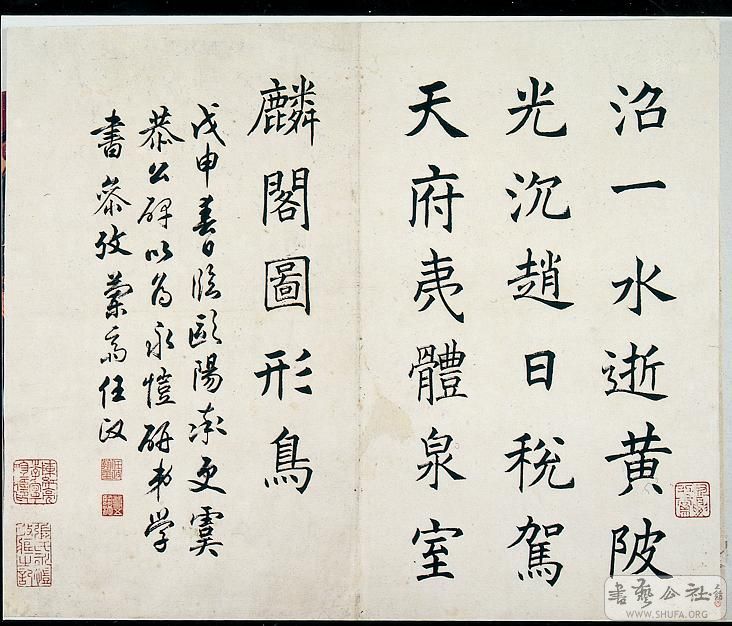 沼一水逝黄陂
光沉趙日税駕
天府夷體泉室
麟閣圖形鳥
戊申春日臨歐陽率更虞
恭公碑以為永愷研弟學
書參攷蘭齋任政
書藝公社
WWW.SHUFA.ORG